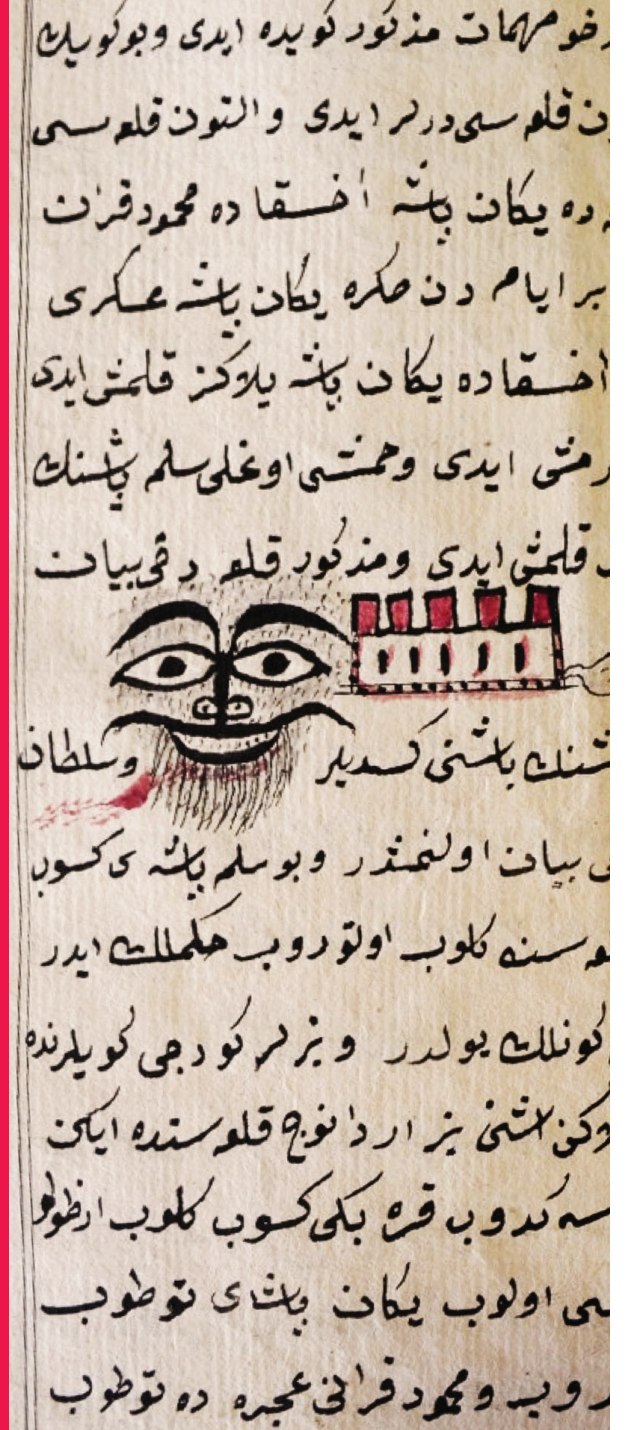 خو مهمات مذكور كويده ايدى وبو كويك
ن قلعه سى درلر ايدى و التون قلعه سى
ده يكان پاشه اخسقا ده محمود قران
بر ايام دن صكره يكان پاشه عسكرى
اخسقا ده يكان پاشه يلاكز قلمشى ايدى
ايدى وحمشى اوغلى سلم پاشنك
قلمشى ايدى ومذكور قلعه دخى بيان
شنك باشنى كسديلر وسلطان
بيان اولنمشدر وبو سلم پاشه ى كسوب
سنه كلوب اولتوروب حكملك ايدر
كونلك يولدر وبزلر كورجى كويلرنده
بز اردانوج قلعه سنده ايكن
كدوب قره بكى كسوب كلوب ارظولو
سى اولوب يكان پاشاى توطوب
روب ومحمود قرانى عجره ده توطوب